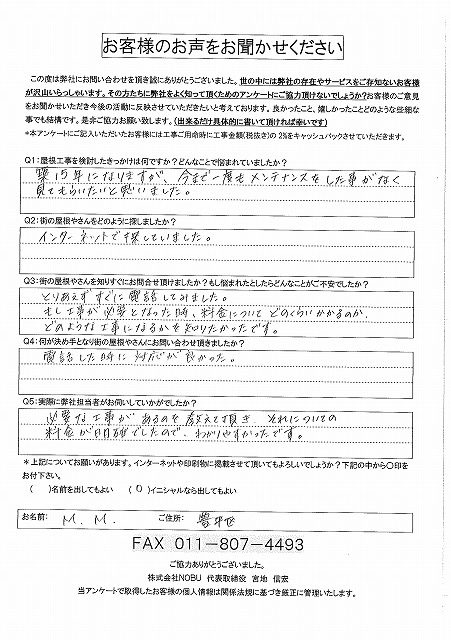 お客様のお声をお聞かせください
この度は弊社にお問い合わせを頂き誠にありがとうございました。世の中には弊社の存在やサービスをご存知ないお客様
が沢山いらっしゃいます。その方たちに弊社をよく知って頂くためのアンケートにご協力頂けないでしょうか?お客様のご意見
をお聞かせいただき今後の活動に反映させていただきたいと考えております。良かったこと、嬉しかったことどのような些細な
事でも結構です。是非ご協力お願い致します。(出来るだけ具体的に書いて頂ければ幸いです)
*本アンケートにご記入いただいたお客様には工事ご用命時に工事金額(税抜き)の2%をキャッシュバックさせていただきます。
Q1:屋根工事を検討したきっかけは何ですか?どんなことで悩まれていましたか?
築15年になりますが、今まで一度もメンテナンスをした事がなく
見てもらいたいと思いました。
Q2:街の屋根やさんをどのように探しましたか?
インターネットで探していました。
Q3:街の屋根やさんを知りすぐにお問合せ頂けましたか?もし悩まれたとしたらどんなことがご不安でしたか?
とりあえずすぐに電話してみました。
もし工事が必要となった時、料金についてどのくらいかかるのか、
どのような工事になるかを知りたかったです。
Q4:何が決め手となり街の屋根やさんにお問い合わせ頂きましたか?
電話した時に対応が良かった。
Q5:実際に弊社担当者がお伺いしていかがでしたか?
必要な工事があるのを教えて頂き、それについての
料金が明確でしたので、わかりやすかったです。
*上記についてお願いがあります。インターネットや印刷物に掲載させて頂いてもよろしいでしょうか?下記の中から〇印を
お付下さい。
( )名前を出してもよい (O)イニシャルなら出してもよい
お名前: M.M. ご住所: 豊平区
FAX 011-807-4493
ご協力ありがとうございました。
株式会社NOBU 代表取締役 宮地 信宏
当アンケートで取得したお客様の個人情報は関係法規に基づき厳正に管理いたします。